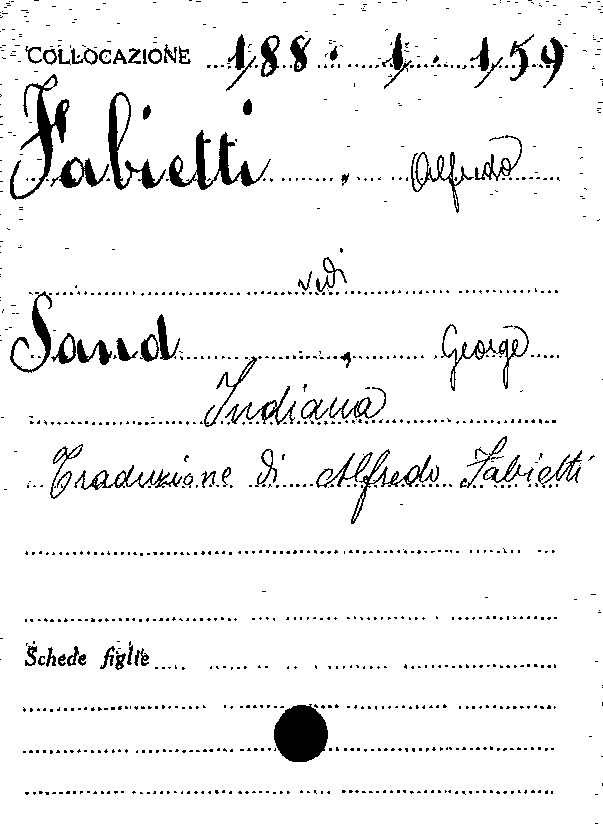 COLLOCAZIONE 188. 1. 159
Fabietti, Alfredo
vedi
Sand, George
Indiana
Traduzione di Alfredo Fabietti
Schede figlie